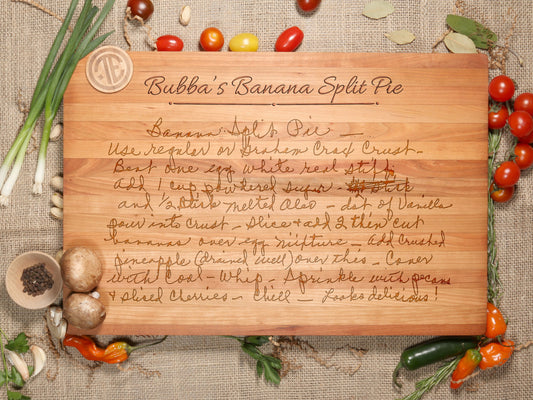 Bubba's Banana Split Pie
Banana Split Pie —
Use regular or Graham Crax Crust —
Beat one egg white real stiff
add 1 cup powdered sugar —
and ½ stick melted Also — dst of Vanilla
pour into Crust — Slice & add 2 thin cut
bananas over egg mixture — add Crushed
pineapple (drained well) over this — Cover
with Cool-Whip — Sprinkle with pecans
& sliced Cherries — Chill — Looks delicious!